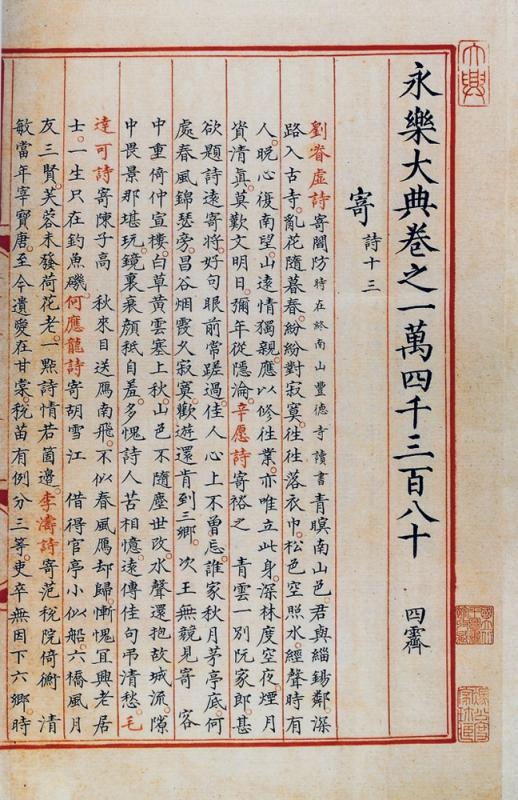 永樂大典卷之一萬四千三百八十 四霽
寄 詩十三
劉眘虛詩寄閻防時在終南山豐德寺讀書青暝南山色。君與緇錫鄰。深
路入古寺。亂花隨暮春。紛紛對寂寞。往往落衣巾。松色空照水。經聲時有
人。晚心復南望。山遠情獨親。應以修往業。亦唯立此身。深林度空夜。煙月
資清真。莫歎文明日。彌年從隱淪。辛愿詩寄裕之 青雲一別阮家郎。甚
欲題詩遠寄將。好句眼前常蹉過。佳人心上不曾忘。誰家秋月茅亭底。何
處春風錦瑟旁。昌谷烟霞久寂寞。歡遊還肯到三鄉。 次王無競見寄 客
中重倚仲宣樓。白草黃雲塞上秋。山色不隨塵世改。水聲還抱故城流。隙
中畏景那堪玩。鏡裏衰顏秪自羞。多愧詩人苦相憶。遠傳佳句弔清愁。毛
達可詩寄陳子高 秋來目送雁南飛。不似春風雁却歸。慚愧宜興老居
士。一生只在釣魚磯。何應龍詩寄胡雪江 借得官亭小似船。六橋風月
友三賢。芙蓉未發荷花老。一點詩情若箇邊。李濤詩寄范稅院倚衡 清
敏當年宰寶唐。至今遺愛在甘棠。稅苗有例分三等。吏卒無因下六鄉。時
大興